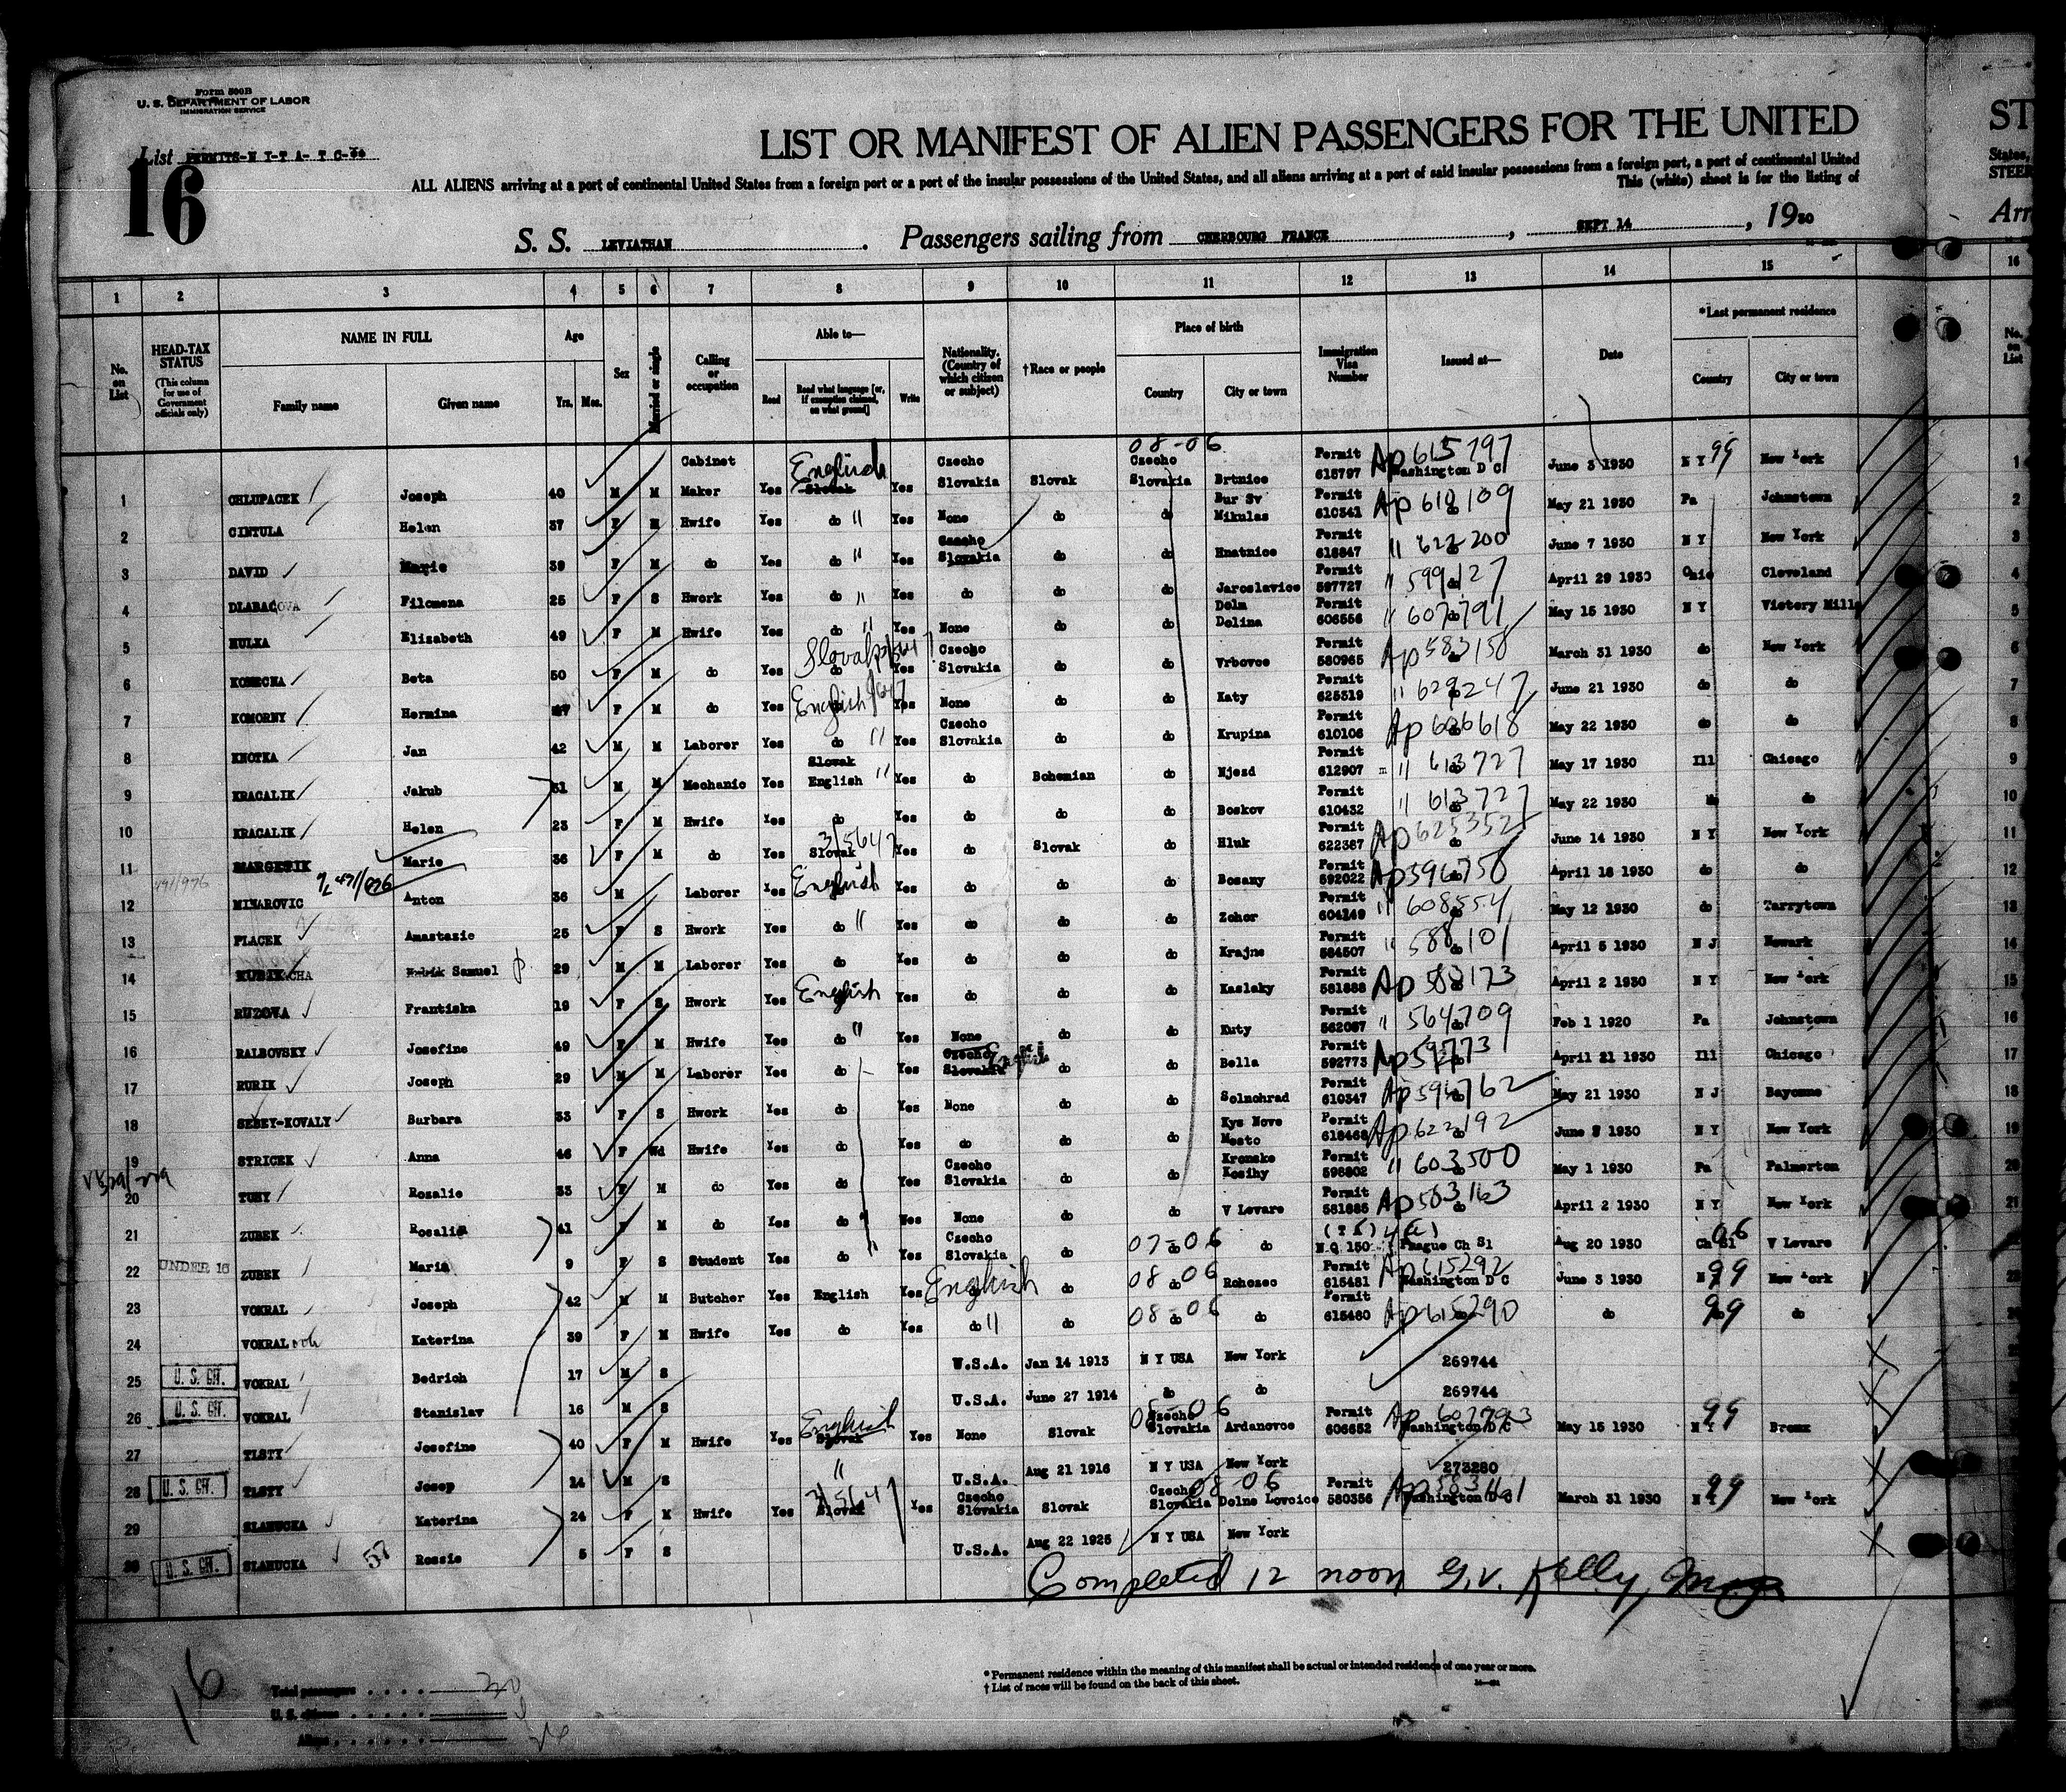 Form 500B
U. S. DEPARTMENT OF LABOR
IMMIGRATION SERVICE
List PERMITS-N I-T A- T C-
16
LIST OR MANIFEST OF ALIEN PASSENGERS FOR THE UNITED
ALL ALIENS arriving at a port of continental United States from a foreign port or a port of the insular possessions of the United States, and all aliens arriving at a port of said insular possessions from a foreign port, a part of continental United
This (white) sheet is for the listing of
S. S. LEVIATHAN. Passengers sailing from CHERBOURG FRANCE, SEPT 14, 1930
1 2 3 4 5 6 7 8 9 10 11 12 13 14 15
No. on List HEAD-TAX STATUS (This column for use of Government officials only) NAME IN FULL Family name Given name Age Yrs. Mos. Sex Married or single Calling or occupation Able to— Read Read what language [or, if exemption claimed, on what ground] Write Nationality. (Country of which citizen or subject) †Race or people Place of birth Country City or town Immigration Visa Number Issued at— Date *Last permanent residence Country City or town
08-06
1 CHLUPACEK Joseph 40 M M Cabinet Maker Yes Slovak English Yes Czecho Slovakia Slovak Czecho Slovakia Brtnice Permit 615797 Ap 615797 Washington D C June 3 1930 N Y 99 New York
2 CINTULA Helen 37 F M Hwife Yes do " Yes None do do Bur Sv Mikulas Permit 610341 Ap 618109 May 21 1930 Pa Johnstown
3 DAVID Marie 39 F M do Yes do " Yes Czecho Slovakia do do Hnatnice Permit 618847 " 622200 June 7 1930 N Y New York
4 DLABACOVA Filomena 25 F S Hwork Yes do " Yes do do do Jaroslavice Permit 597727 " 599127 April 29 1930 Ohio Cleveland
5 HULKA Elizabeth 49 F M Hwife Yes do " Yes None do do Dolm Dolina Permit 606556 " 607791 May 15 1930 N Y Victory Mill
6 KONECNA Beta 50 F M do Yes do Slovak Yes Czecho Slovakia do do Vrbovce Permit 580965 Ap 583158 March 31 1930 do New York
7 KOMORNY Hermina F M do Yes English Yes None do do Katy Permit 625319 " 629247 June 21 1930 do do
8 KNOTKA Jan 42 M M Laborer Yes do " Yes Czecho Slovakia do do Krupina Permit 610106 Ap 606618 May 22 1930 do do
9 KRACALIK Jakub 31 M M Mechanic Yes Slovak English " Yes do Bohemian do Njezd Permit 612907 " 613727 May 17 1930 Ill Chicago
10 KRACALIK Helen 23 F M Hwife Yes do Yes do do do Boskov Permit 610432 " 613727 May 22 1930 do
11 MARGETIK Marie 36 F M do Yes Slovak 3/5647 Yes do Slovak do Hluk Permit 622387 Ap 625352 June 14 1930 N Y New York
12 MINAROVIC Anton 36 M Laborer Yes English Yes do do do Bosany Permit 592022 Ap 594758 April 18 1930 do do
13 PLACEK Anastazie 25 F S Hwork Yes do " Yes do do do Zohor Permit 604149 " 608554 May 12 1930 do Tarrytown
14 KUBIKCHA Samuel 29 M M Laborer Yes do Yes do do do Krajne Permit 584507 " 588101 April 5 1930 N J Newark
15 RUZOVA Frantiska 19 F S Hwork Yes English Yes do do do Kaslaky Permit 581888 Ap 583173 April 2 1930 N Y New York
16 RALBOVSKY Josefine 49 F M Hwife Yes do " Yes None do do Kuty Permit 562087 " 564709 Feb 1 1920 Pa Johnstown
17 RURIK Joseph 29 M M Laborer Yes do Yes Czecho Slovakia do do Bella Permit 592773 April 21 1930 Ill Chicago
18 SEBEY-KOVALY Burbara 33 F S Hwork Yes do Yes None do do Solnohrad Permit 610347 Ap 594762 May 21 1930 N J Bayonne
19 STRICEK Anna 46 F Wd Hwife Yes do Yes do do do Kys Nove Mesto Permit 618468 Ap 622192 June 8 1930 N Y New York
20 TUHY Rozalie 33 F M do Yes do Yes Czecho Slovakia do do Kronske Kosihy Permit 598802 " 603500 May 1 1930 Pa Palmerton
21 ZUBEK Rosalia 41 F M do Yes do Yes None do do V Levare Permit 581885 Ap 583163 April 2 1930 N Y New York
22 UNDER 16 ZUBEK Maria 9 F S Student Yes do " Yes Czecho Slovakia do 07-06 do do N.Q 150 Prague Ch Sl Aug 20 1930 Ch Sl 06 V Levare
23 VOKRAL Joseph 42 M M Butcher Yes English Yes English do 08-06 do Rohozec Permit 615481 Ap 615292 Washington D C June 3 1930 N 99 New York
24 VOKRAL Katerina 39 F M Hwife Yes do Yes do " do 08-06 do do Permit 615480 Ap 615290 do 99 do
25 U. S. CIT. VOKRAL Bedrich 17 M S U.S.A. Jan 14 1913 N Y USA New York 269744
26 U. S. CIT. VOKRAL Stanislav 16 M S U.S.A. June 27 1914 do do 269744
27 TLSTY Josefine 40 F M Hwife Yes Slovak English Yes None Slovak Czecho Slovakia Ardanovce Permit 606652 Ap 607793 Washington D C May 15 1930 N Y 99 Bronx
28 U. S. CIT. TLSTY Josep 14 M S " U.S.A. Aug 21 1916 N Y USA New York 273280
29 SLANUCKA Katerina 24 F M Hwife Yes Slovak Yes Czecho Slovakia Slovak Czecho Slovakia 08-06 Dolne Lovcice Permit 580356 Washington D C March 31 1930 N Y 99 New York
30 U. S. CIT. SLANUCKA 57 Rossie 5 F S U.S.A. Aug 22 1925 N Y USA New York
Completed 12 noon G.V. Kelly
16
Total passengers 30
U. S. citizens
Aliens
* Permanent residence within the meaning of this manifest shall be actual or intended residence of one year or more.
† List of races will be found on the back of this sheet.
ST
States,
STEER
Arri
16
No. on List